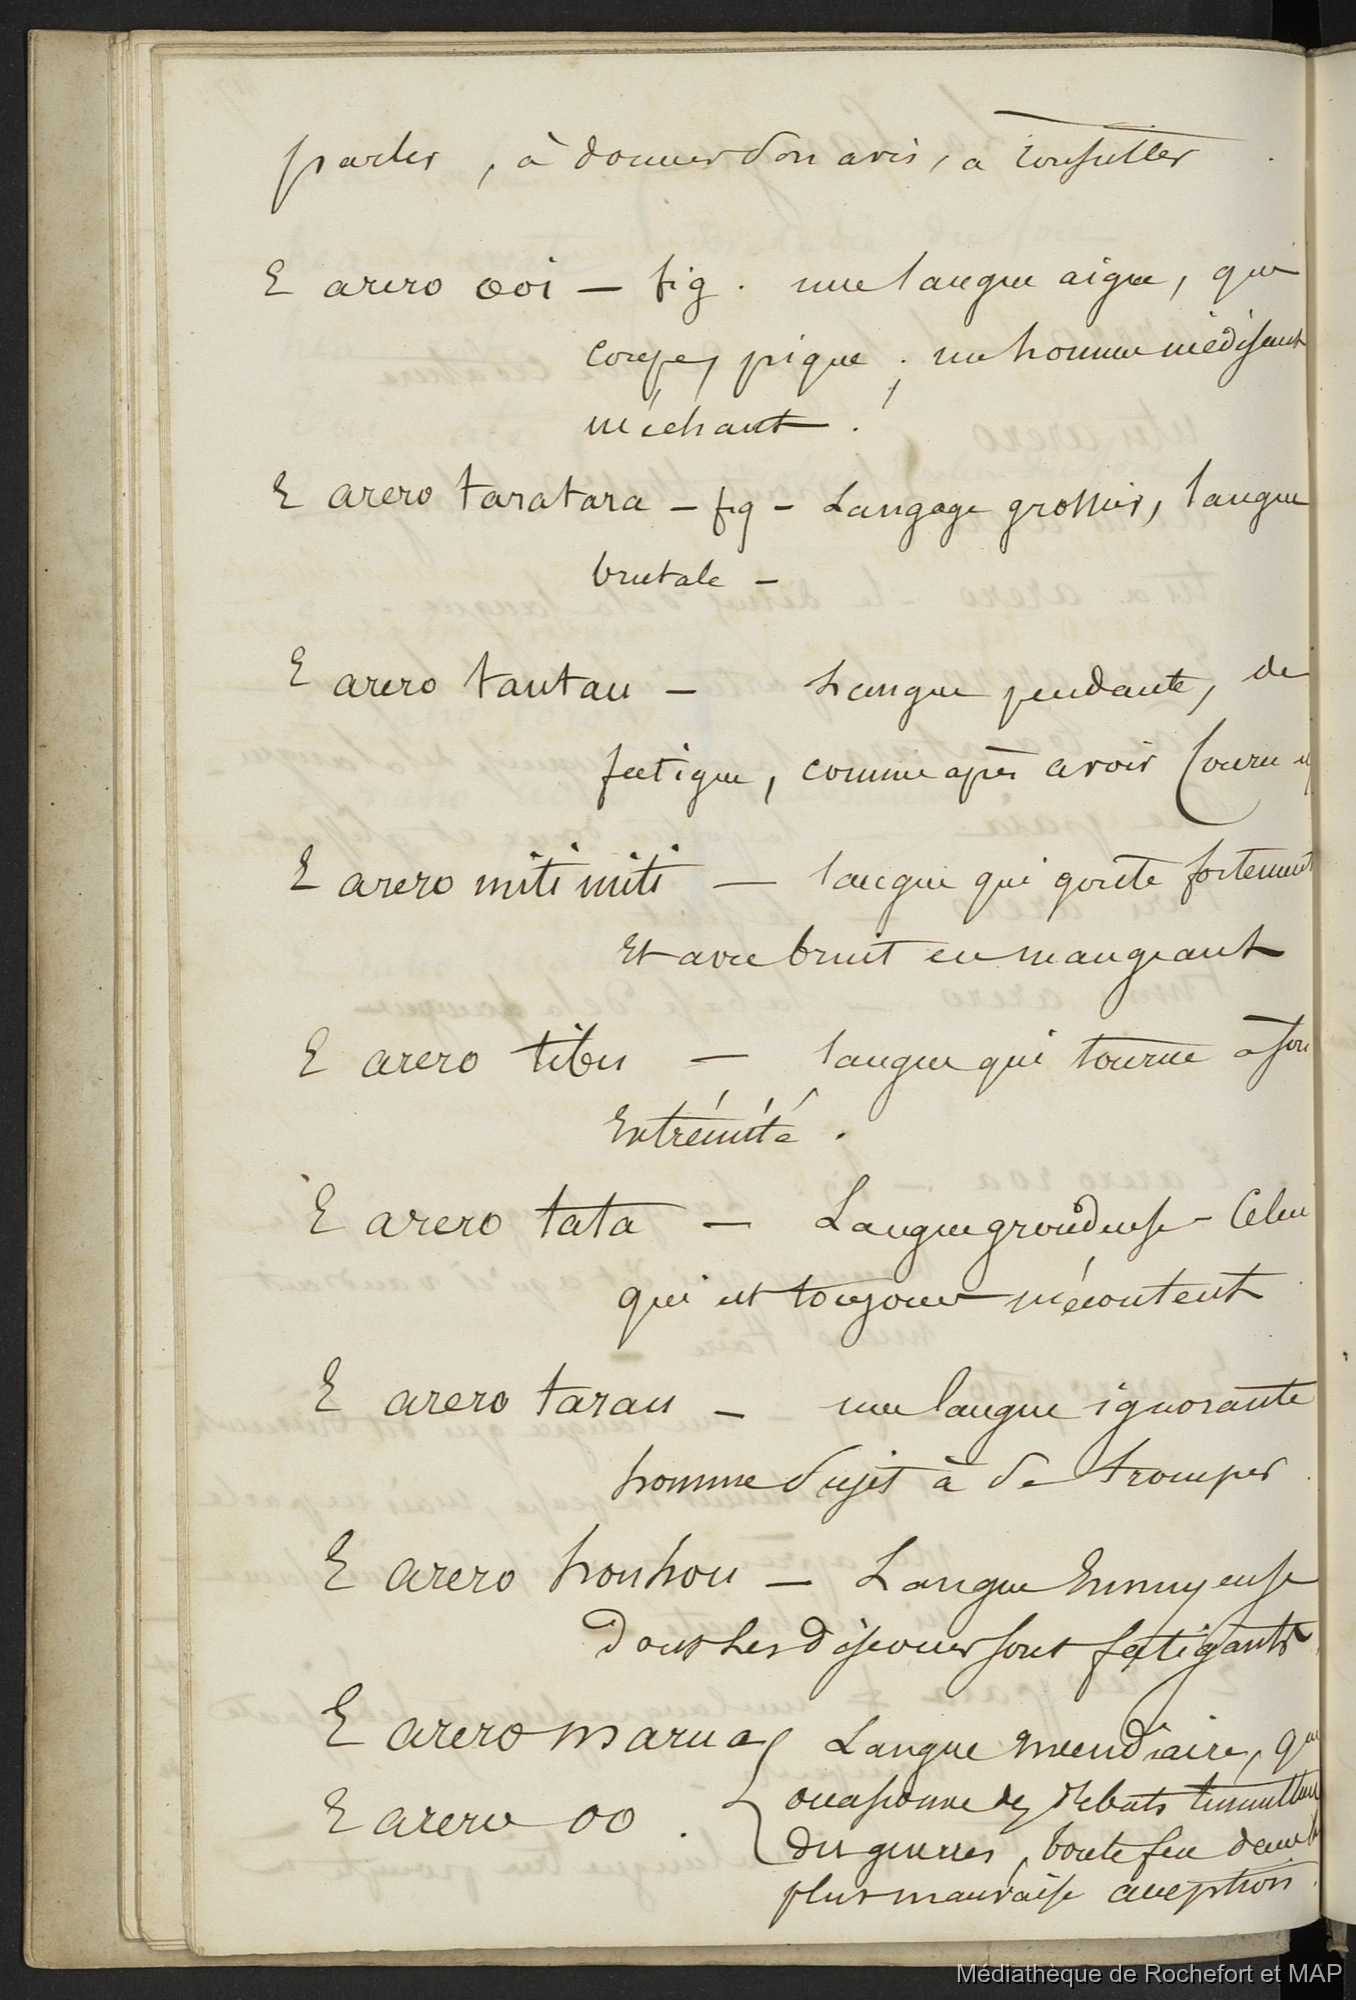 parler, à donner son avis, a consulter
E arero ooi — fig. une langue aigue, qui
coupe, pique ; un homme médisant
méchant.
E arero taratara — fig — Langage grossier, langue
brutale —
E arero tautau — Langue pendante, de
fatigue, comme après avoir couru
E arero mitimiti — langue qui goute fortement
et avec bruit en mangeant
E arero tibu — langue qui tourne a son
Extrémité.
E arero tata — Langue grondeuse — Celui
qui est toujours mécontent
E arero tarau — une langue ignorante
homme sujet à se tromper
E arero houhou — Langue Ennuyeuse
dont les discours sont fatigants
E arero marua { Langue incendiaire, qui
E arero oo. occasionne des debats tumultueux
des guerres, boute feu dans la
plus mauvaise acception.
Médiathèque de Rochefort et MAP